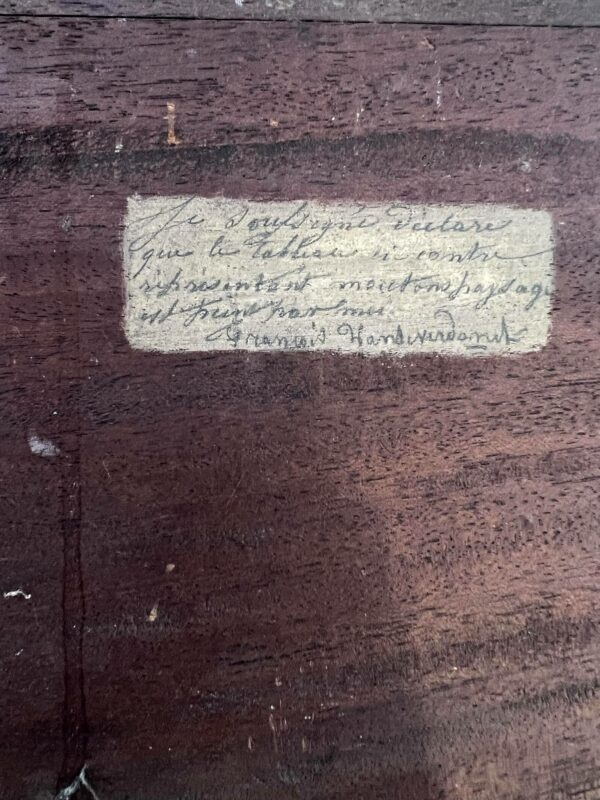 Je Soussigné déclare
que le Tableau ci contre
représentant moutons paysage
est peint par moi
François Vandeverdonck